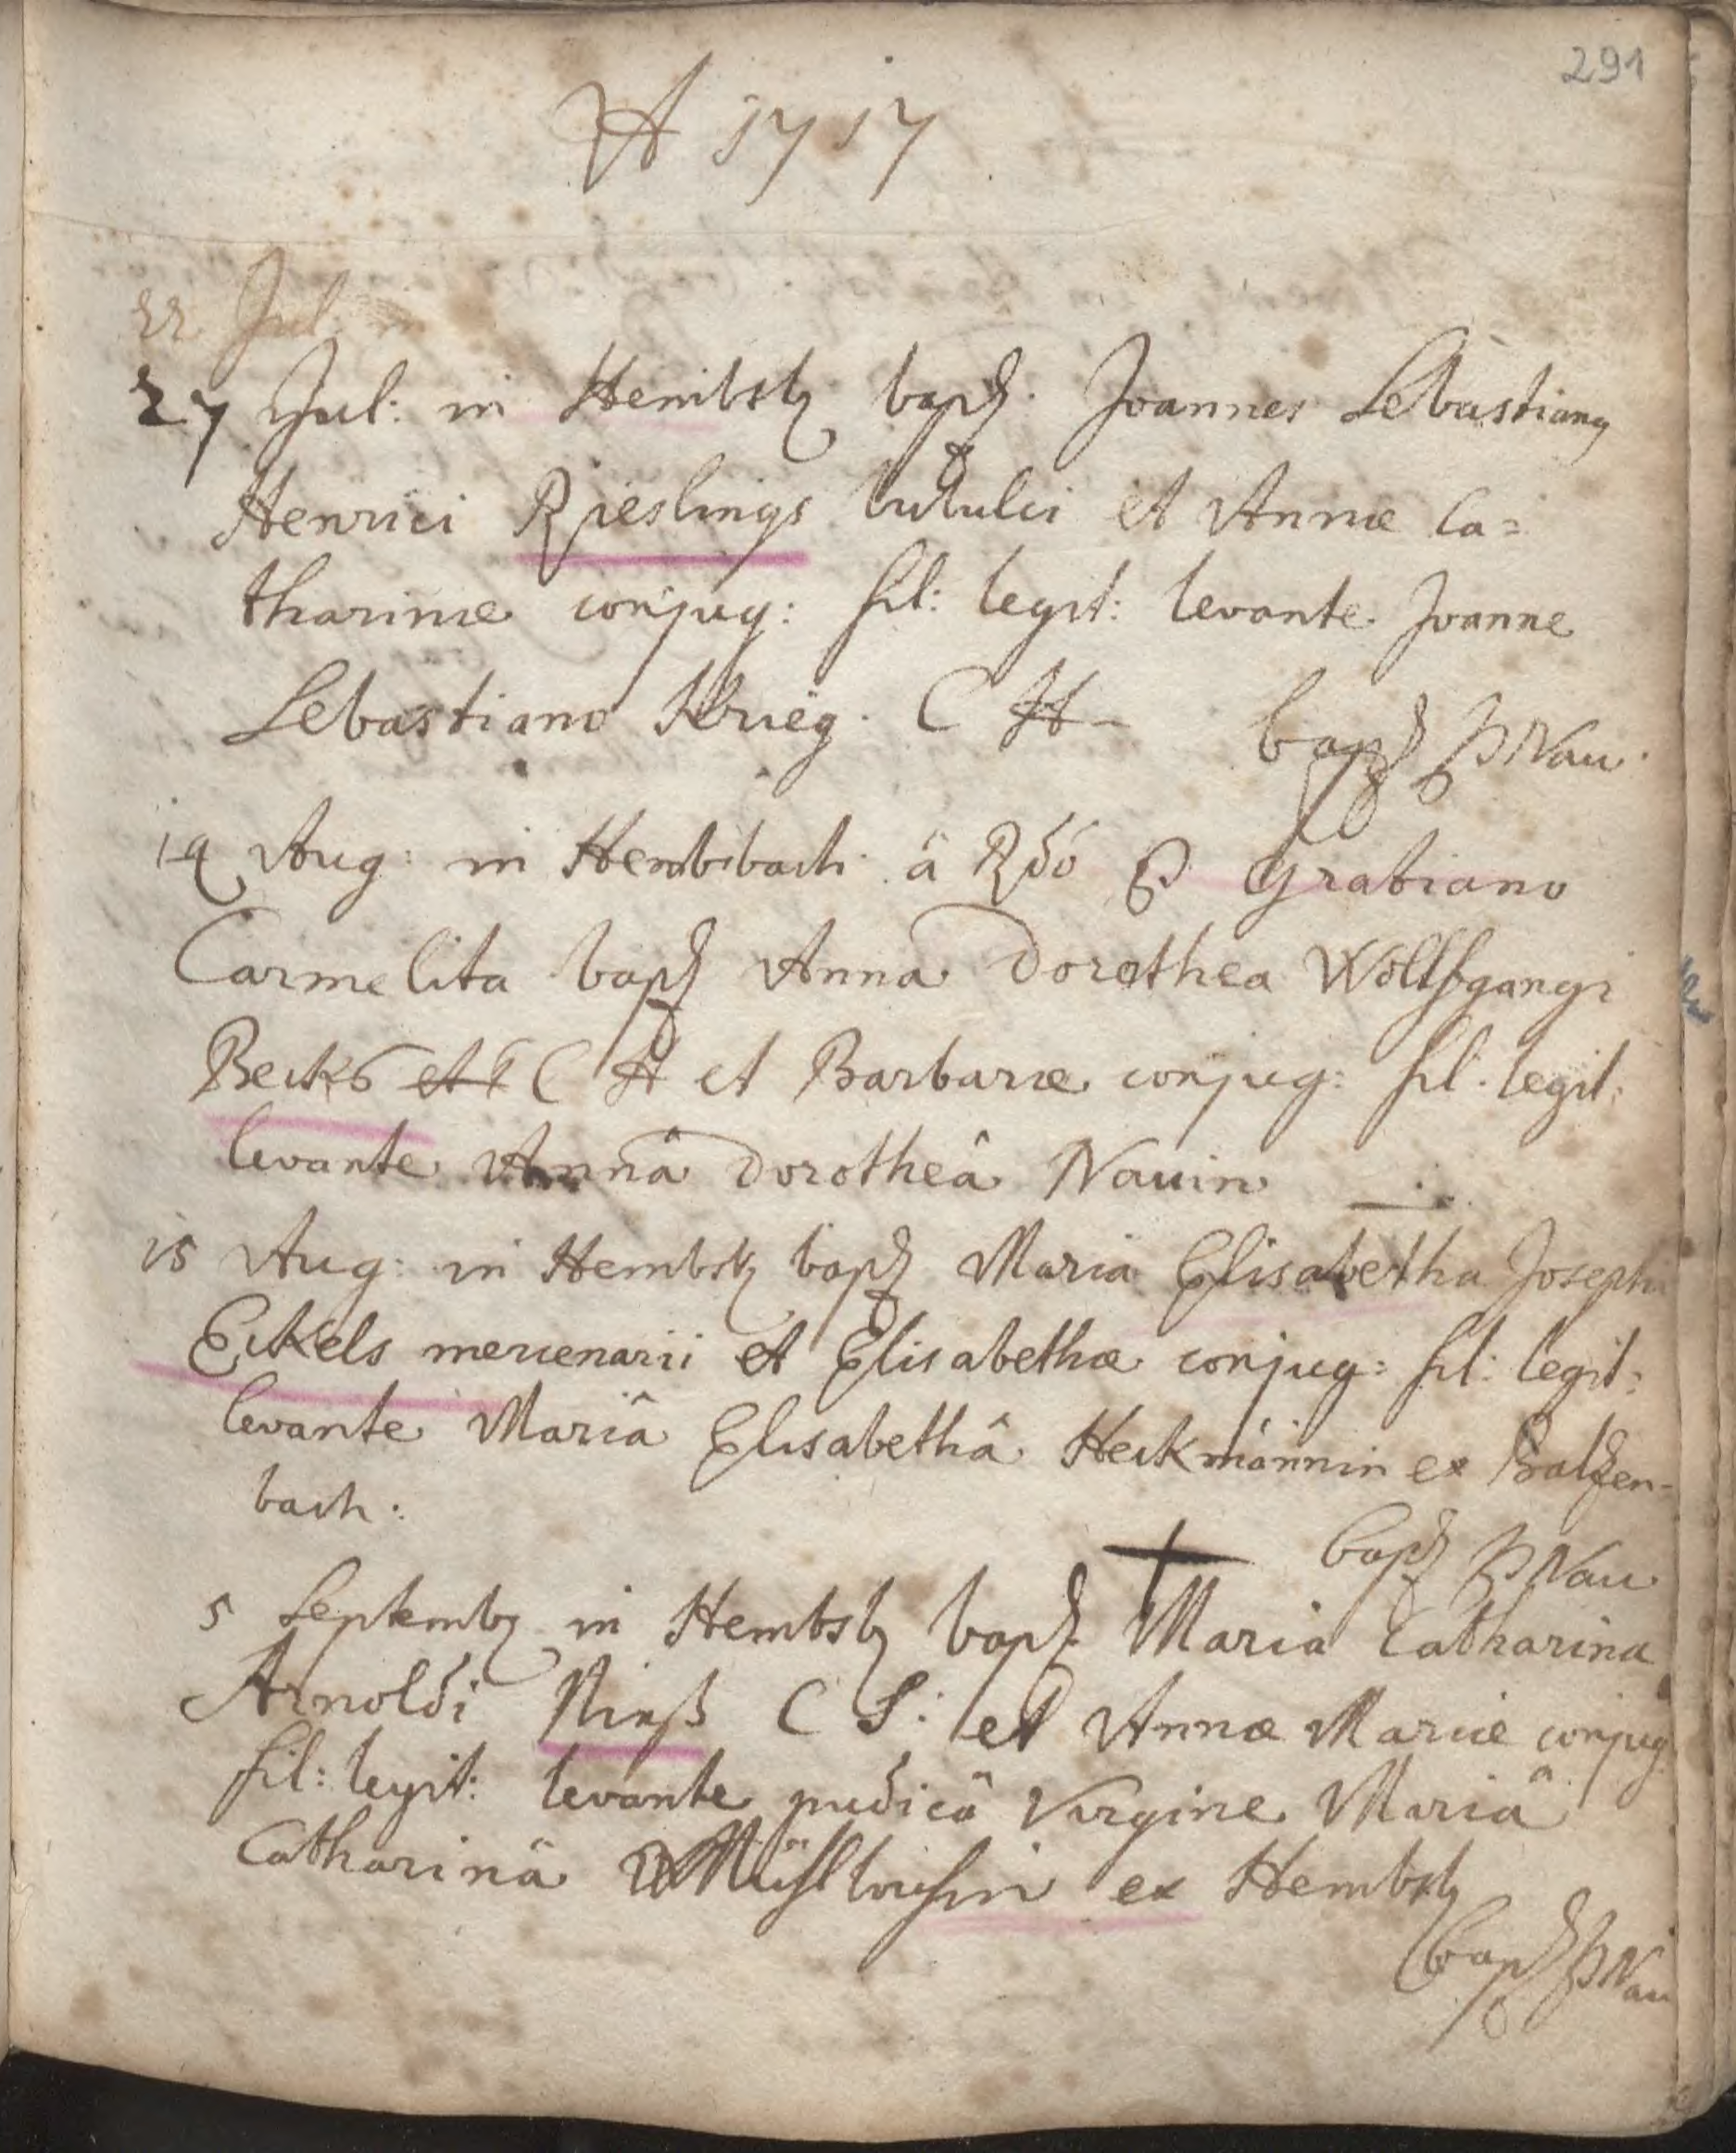 291
A 1717
22 Jul: in
27 Jul: in Hembsb bapt. Joannes Sebastiany
Henrici Rieslings bubulci et Annæ Ca=
tharinæ conjug: fil: legit: levante Joanne
Sebastiano Krieg. C H bapt P Nau.
14 Aug: in Hembsbach â Rdo P. Gratiano
Carmelita bapt Anna Dorothea Wolffgangi
Becks et C H et Barbaræ conjug: fil. legit:
levante Annâ Dorotheâ Nauin
15 Aug: in Hembsb bapt Maria Elisabetha Josephi
Eckels mercenarii et Elisabethæ conjug: fil: legit:
levante Mariâ Elisabethâ Heckmännin ex Balzen-
bach:
bapt P Nau
5 Septemb in Hembsb bapt Maria Catharina
Arnoldi C S: et Annæ Mariæ conjug
fil: legit: levante pudicâ Virgine Mariâ
Catharinâ ex Hembsb
bapt P Nau